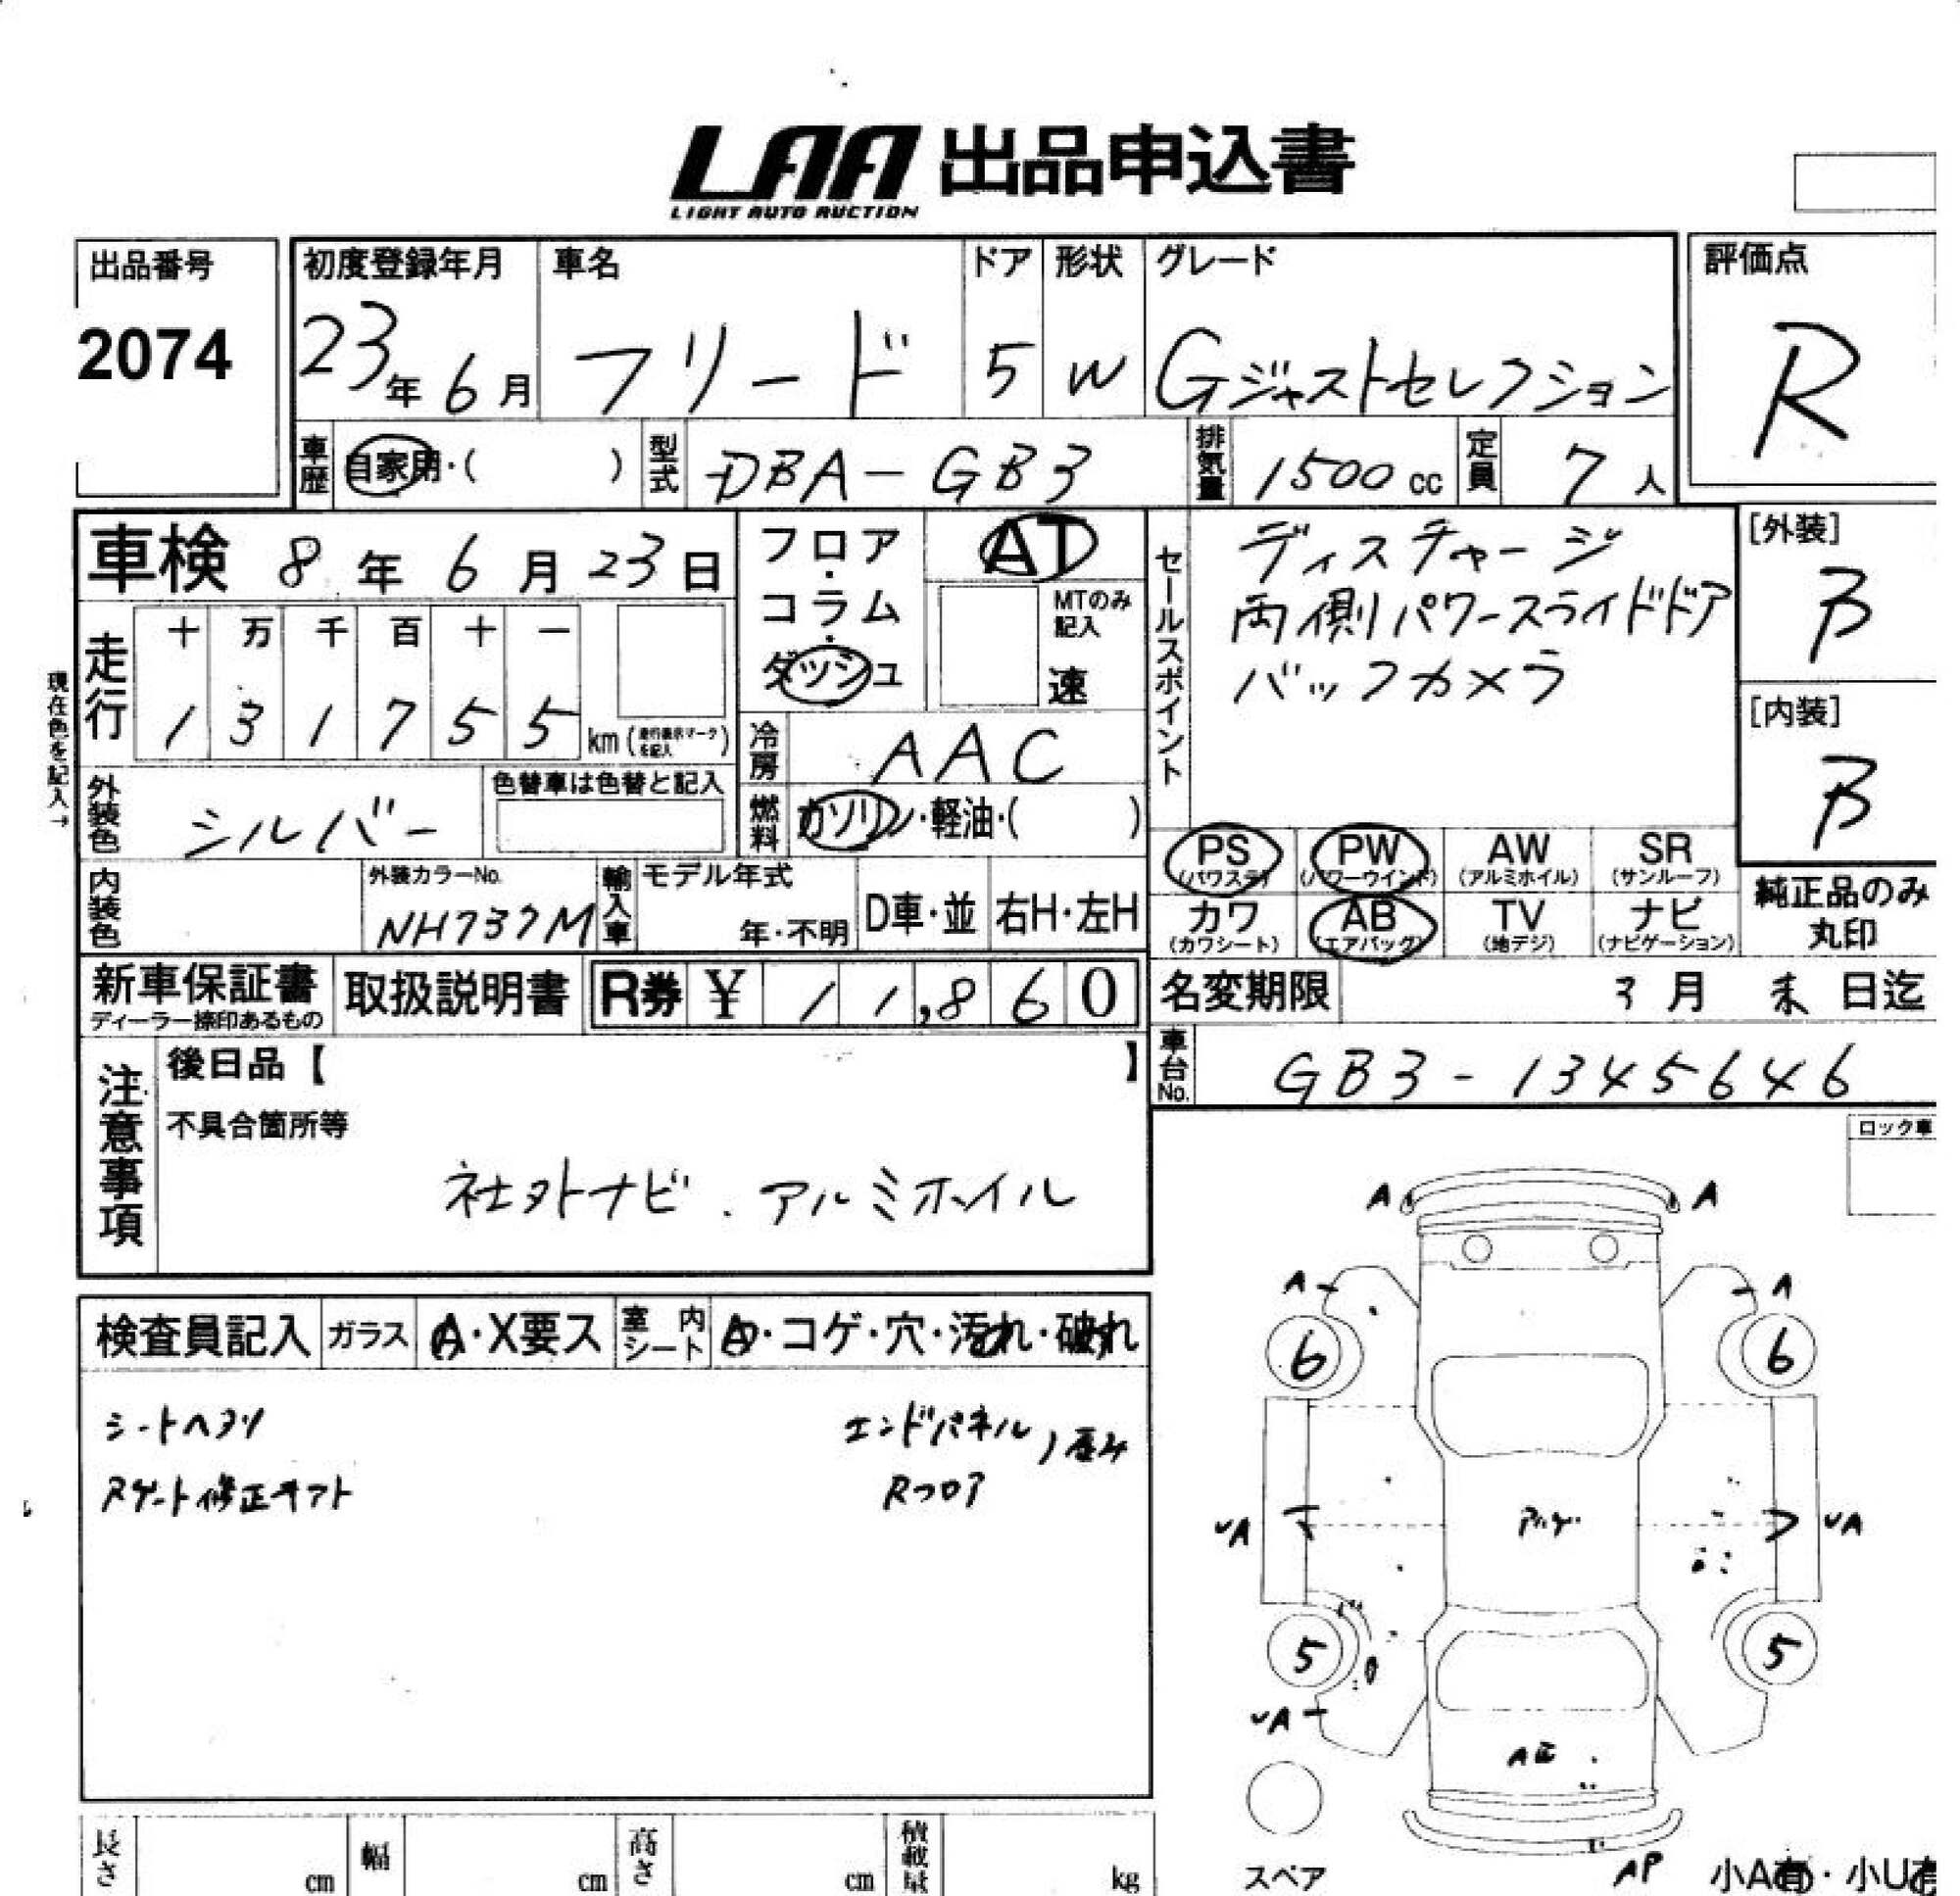 LAA 出品申込書
LIGHT AUTO AUCTION
出品番号
2074
初度登録年月 車名 ドア 形状 グレード
23年6月 フリード 5 W Gジャストセレクション
評価点
R
車歴 自家用・( ) 型式 DBA-GB3 排気量 1500cc 定員 7人
車検 8年6月23日
フロア・コラム・ダッシュ
AT
MTのみ記入
速
セールスポイント
ディスチャージ
両側パワースライドドア
バックカメラ
[外装]
B
[内装]
B
現在色を記入→
走行 十 万 千 百 十 一
1 3 1 7 5 5 km (走行表示マークを記入)
冷房 AAC
外装色 シルバー 色替車は色替と記入
燃料 ガソリン・軽油・( )
PS (パワステ) PW (パワーウインド) AW (アルミホイル) SR (サンルーフ)
カワ (カワシート) AB (エアバッグ) TV (地デジ) ナビ (ナビゲーション)
純正品のみ
丸印
内装色 外装カラーNo. NH737M 輸入車 モデル年式 年・不明 D車・並 右H・左H
新車保証書 ディーラー捺印あるもの 取扱説明書 R券 ¥ 11,860
名変期限 3月末日迄
車台No. GB3-1345646
注意事項
後日品【 】
不具合箇所等
社外ナビ.アルミホイル
ロック車
検査員記入 ガラス A・X要ス 室内シート A・コゲ・穴・汚れ・破れ
シートヘタリ エンドパネル 歪み
Rゲート修正キズト Rフロア
A A
A A
6 6
UA UA
5 5
UA
スペア
AP 小A有・小U有
長さ cm 幅 cm 高さ cm 積載量 kg